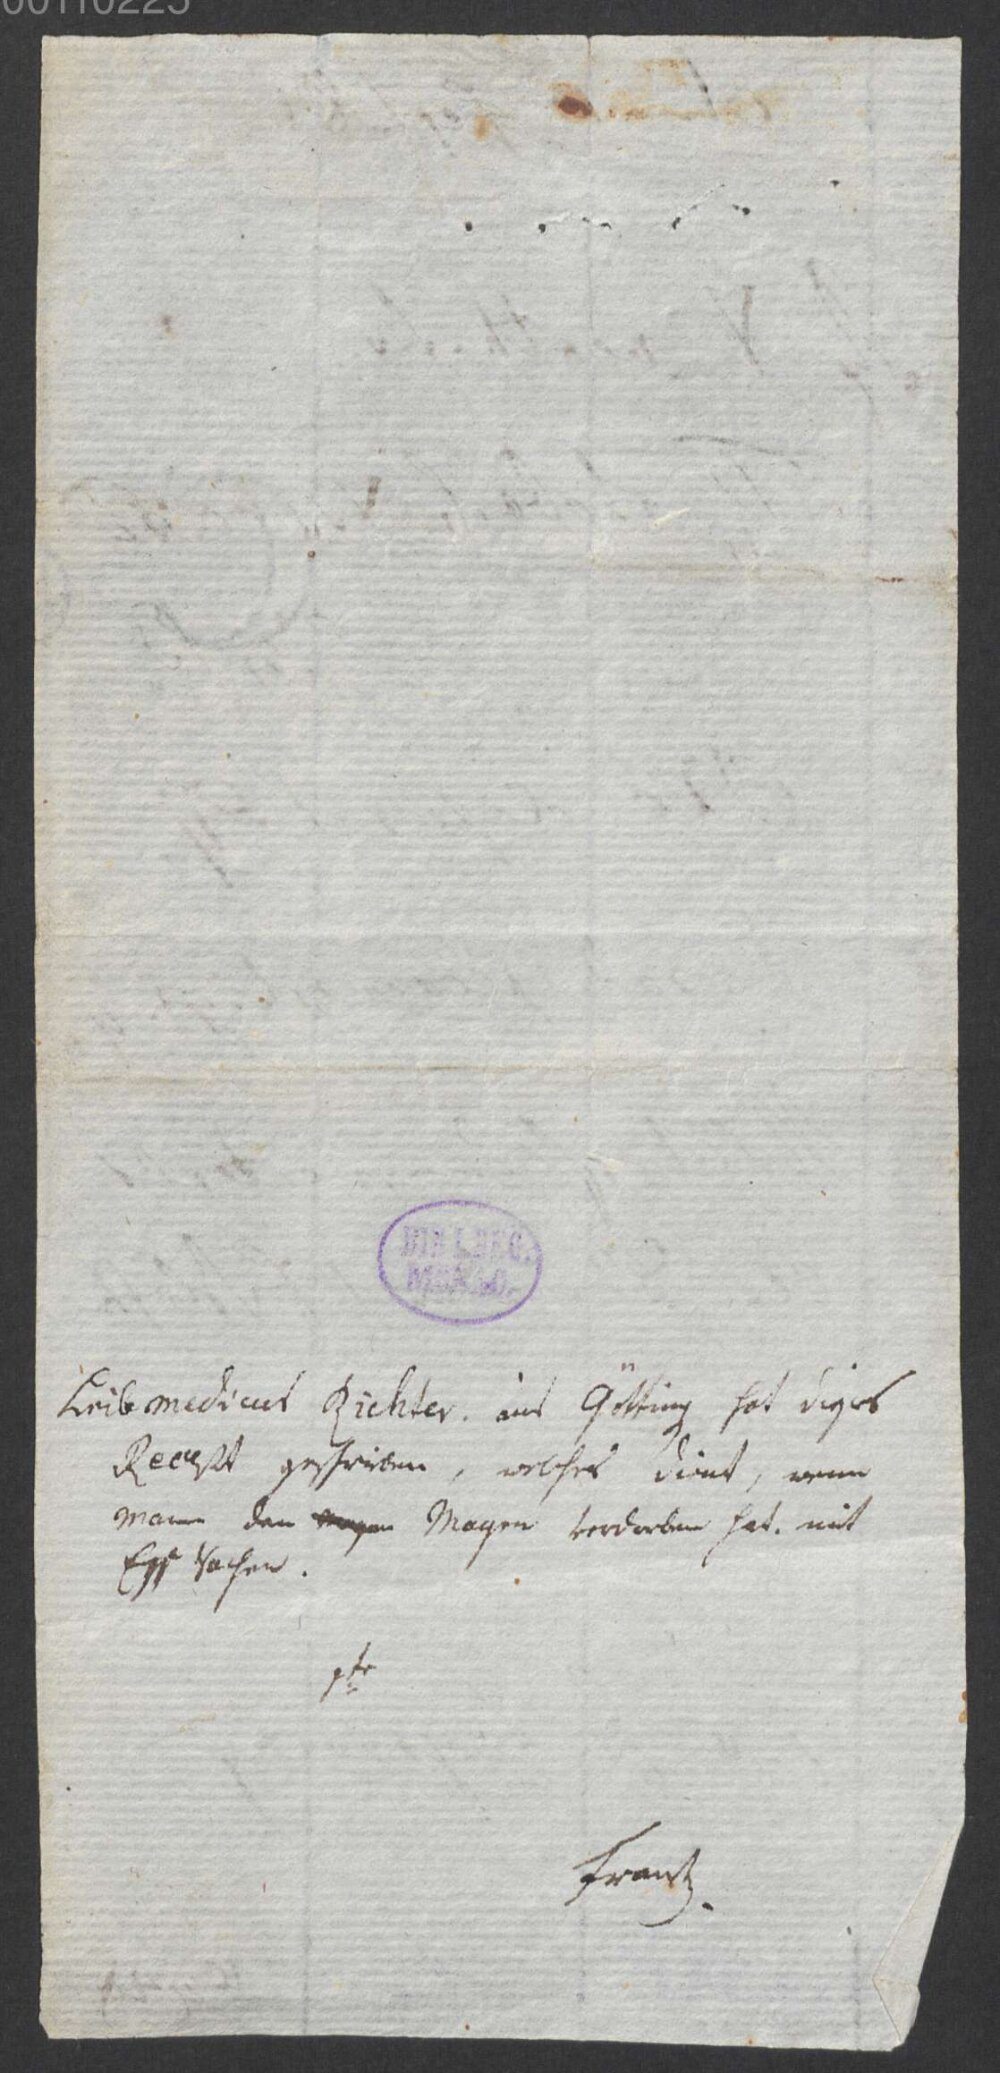 00110225
Leibmedicus Richter. aus Götting hat dieses
Recept geschrieben, welches dient, wenn
mann den Magen verdorben hat. mit
Eß Sachen.
Frantz.